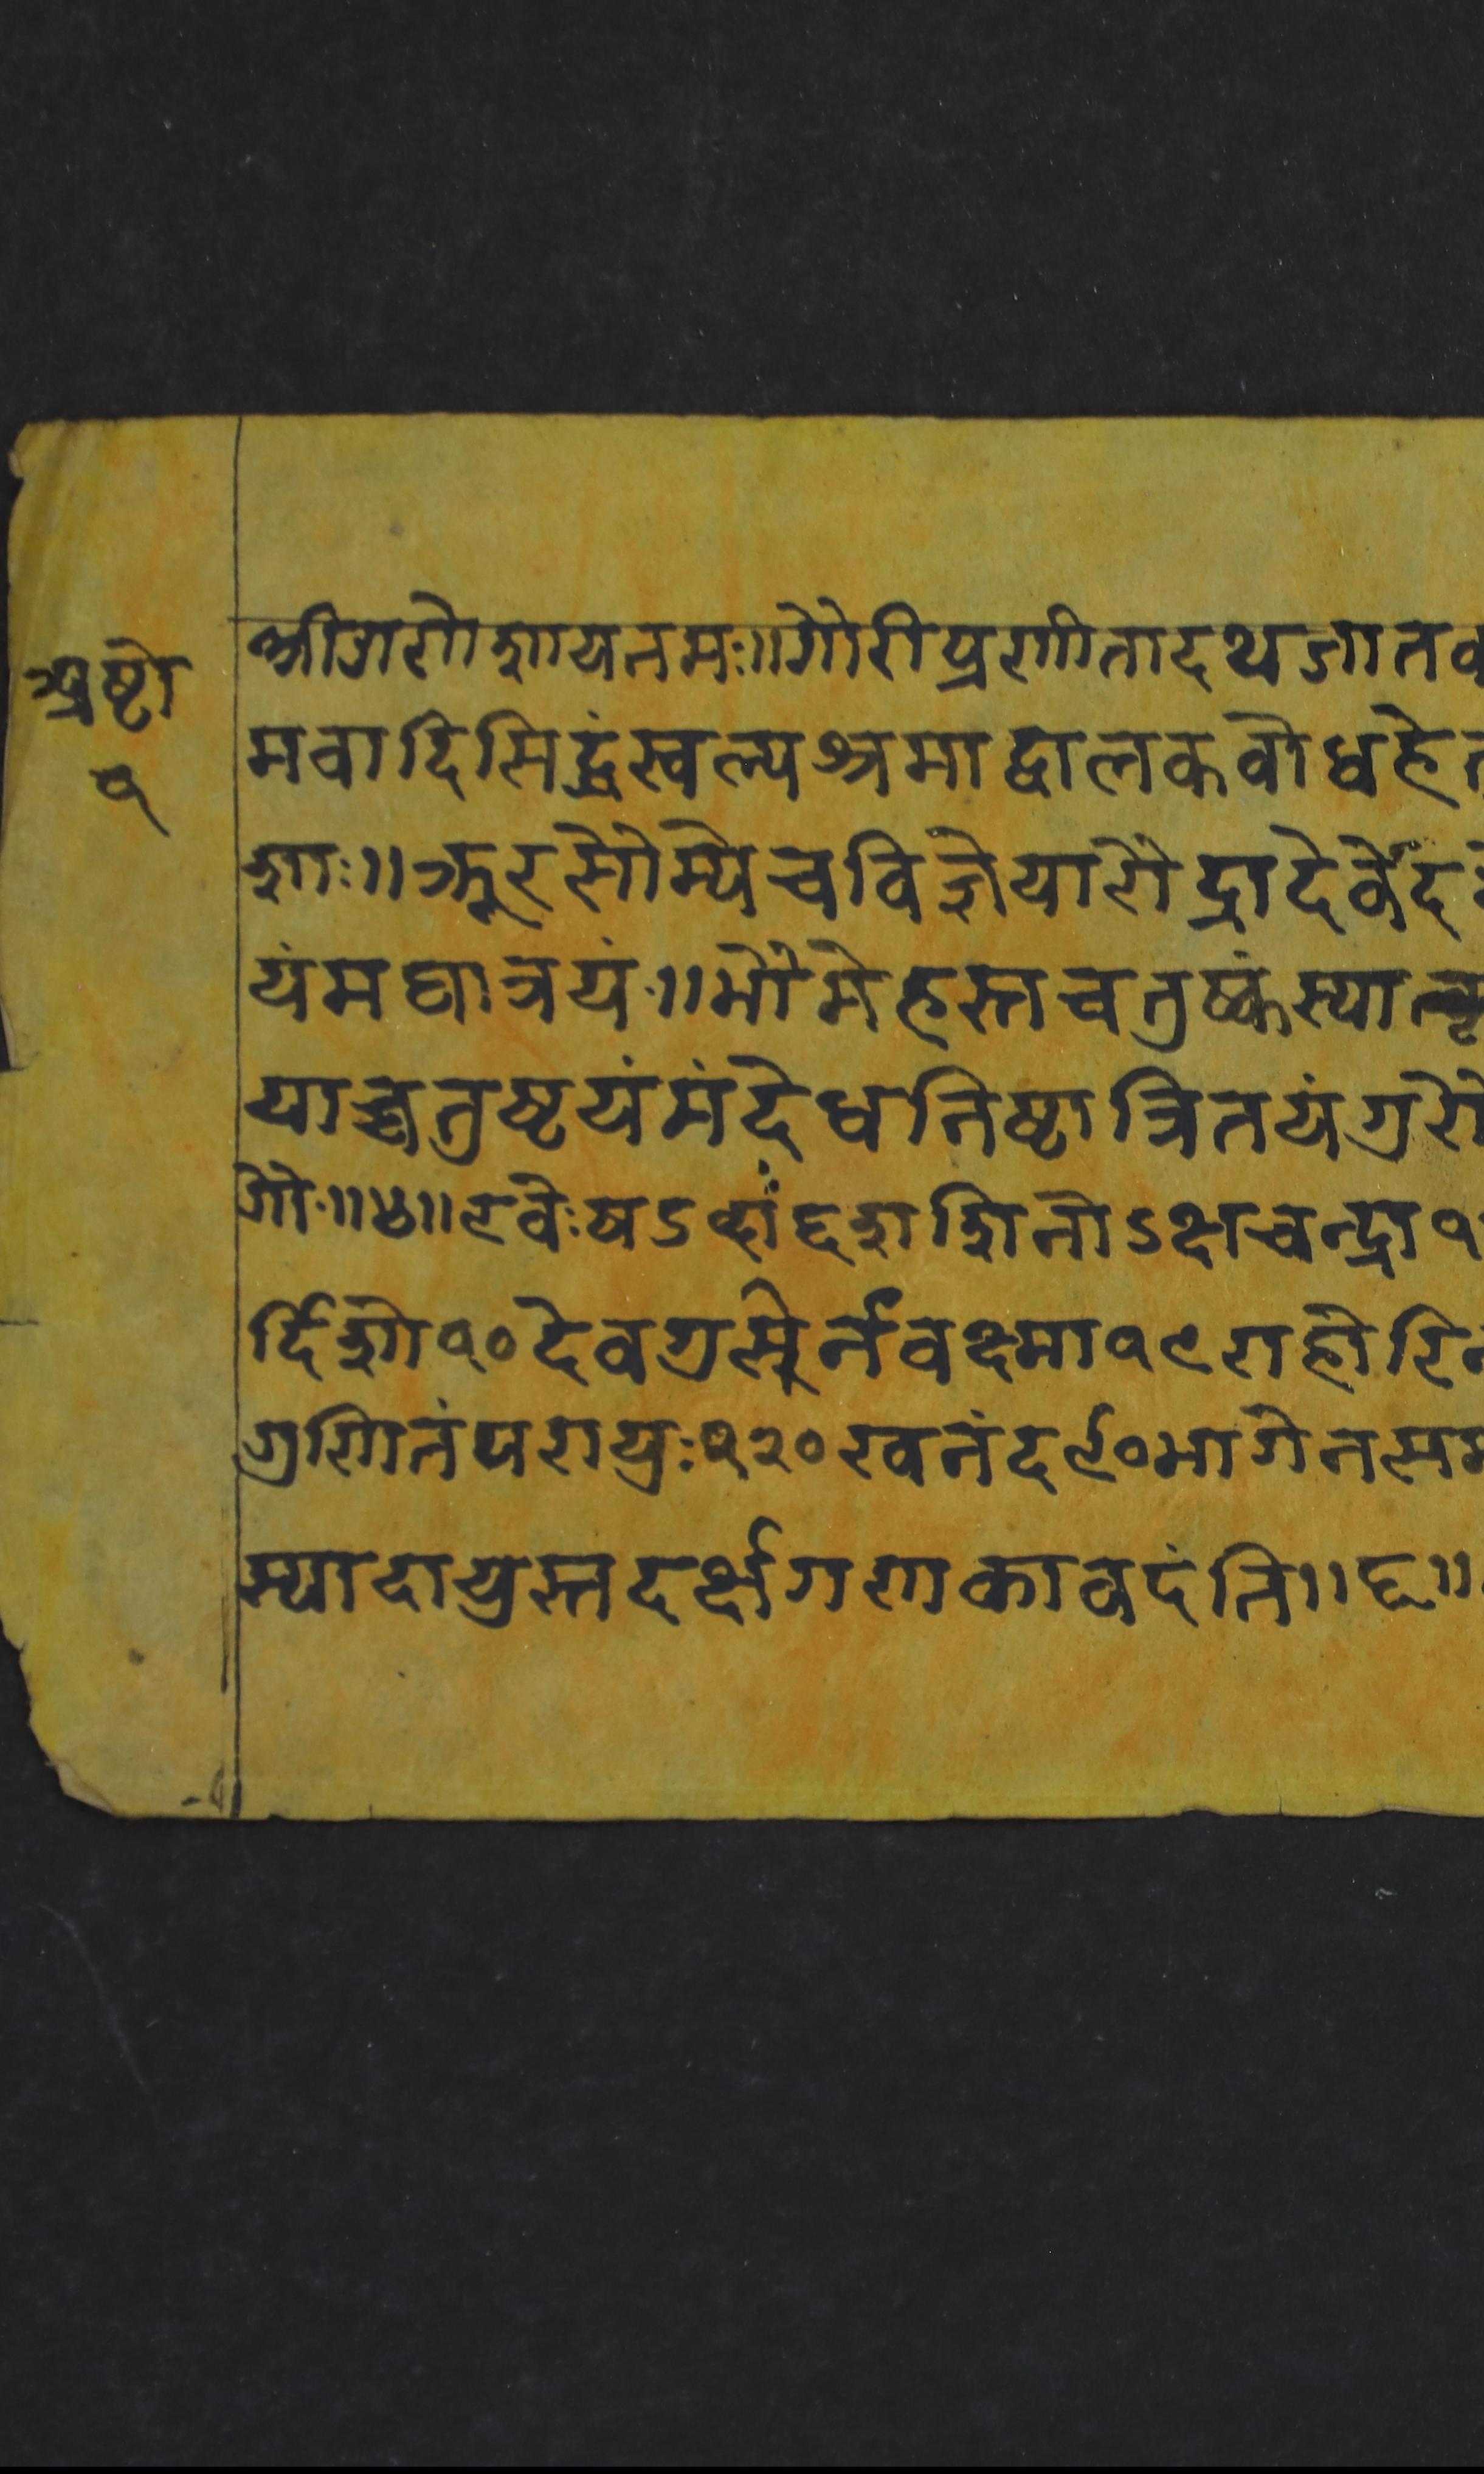 अष्टो
१
श्रीगणेशायनमः॥गौरीप्रणीतादथजात
मवादिसिद्धंस्वल्पश्रमाद्वालकवोधहे
शाः॥क्रूरसौम्येचविज्ञेयारौद्रादेर्वेद
यंमघात्रयंः॥भौमेहस्तचतुष्कंस्यात्
याच्चतुष्टयंमंदेधनिष्टात्रितयंग्र
गोः॥४॥रवेःषऽ शशिनोऽक्षचन्द्रा१
र्दिशो१०देवगुरोर्नवक्ष्मा१९राहोरि
गुणितंपरायुः१२०खनंद९०भागेन
स्यादायुस्तदर्क्षगणकावदंति॥६॥